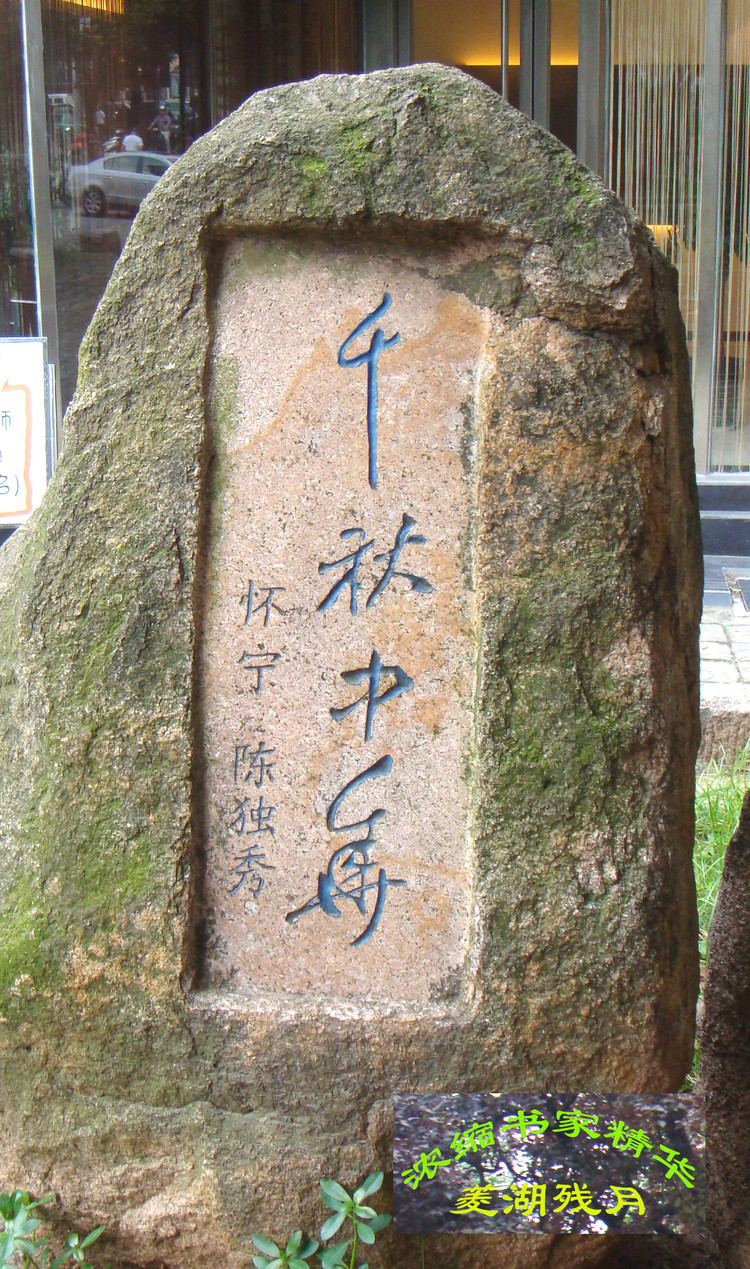 千秋中華
怀宁 陈独秀
师
名)
浓缩书家精华
菱湖残月